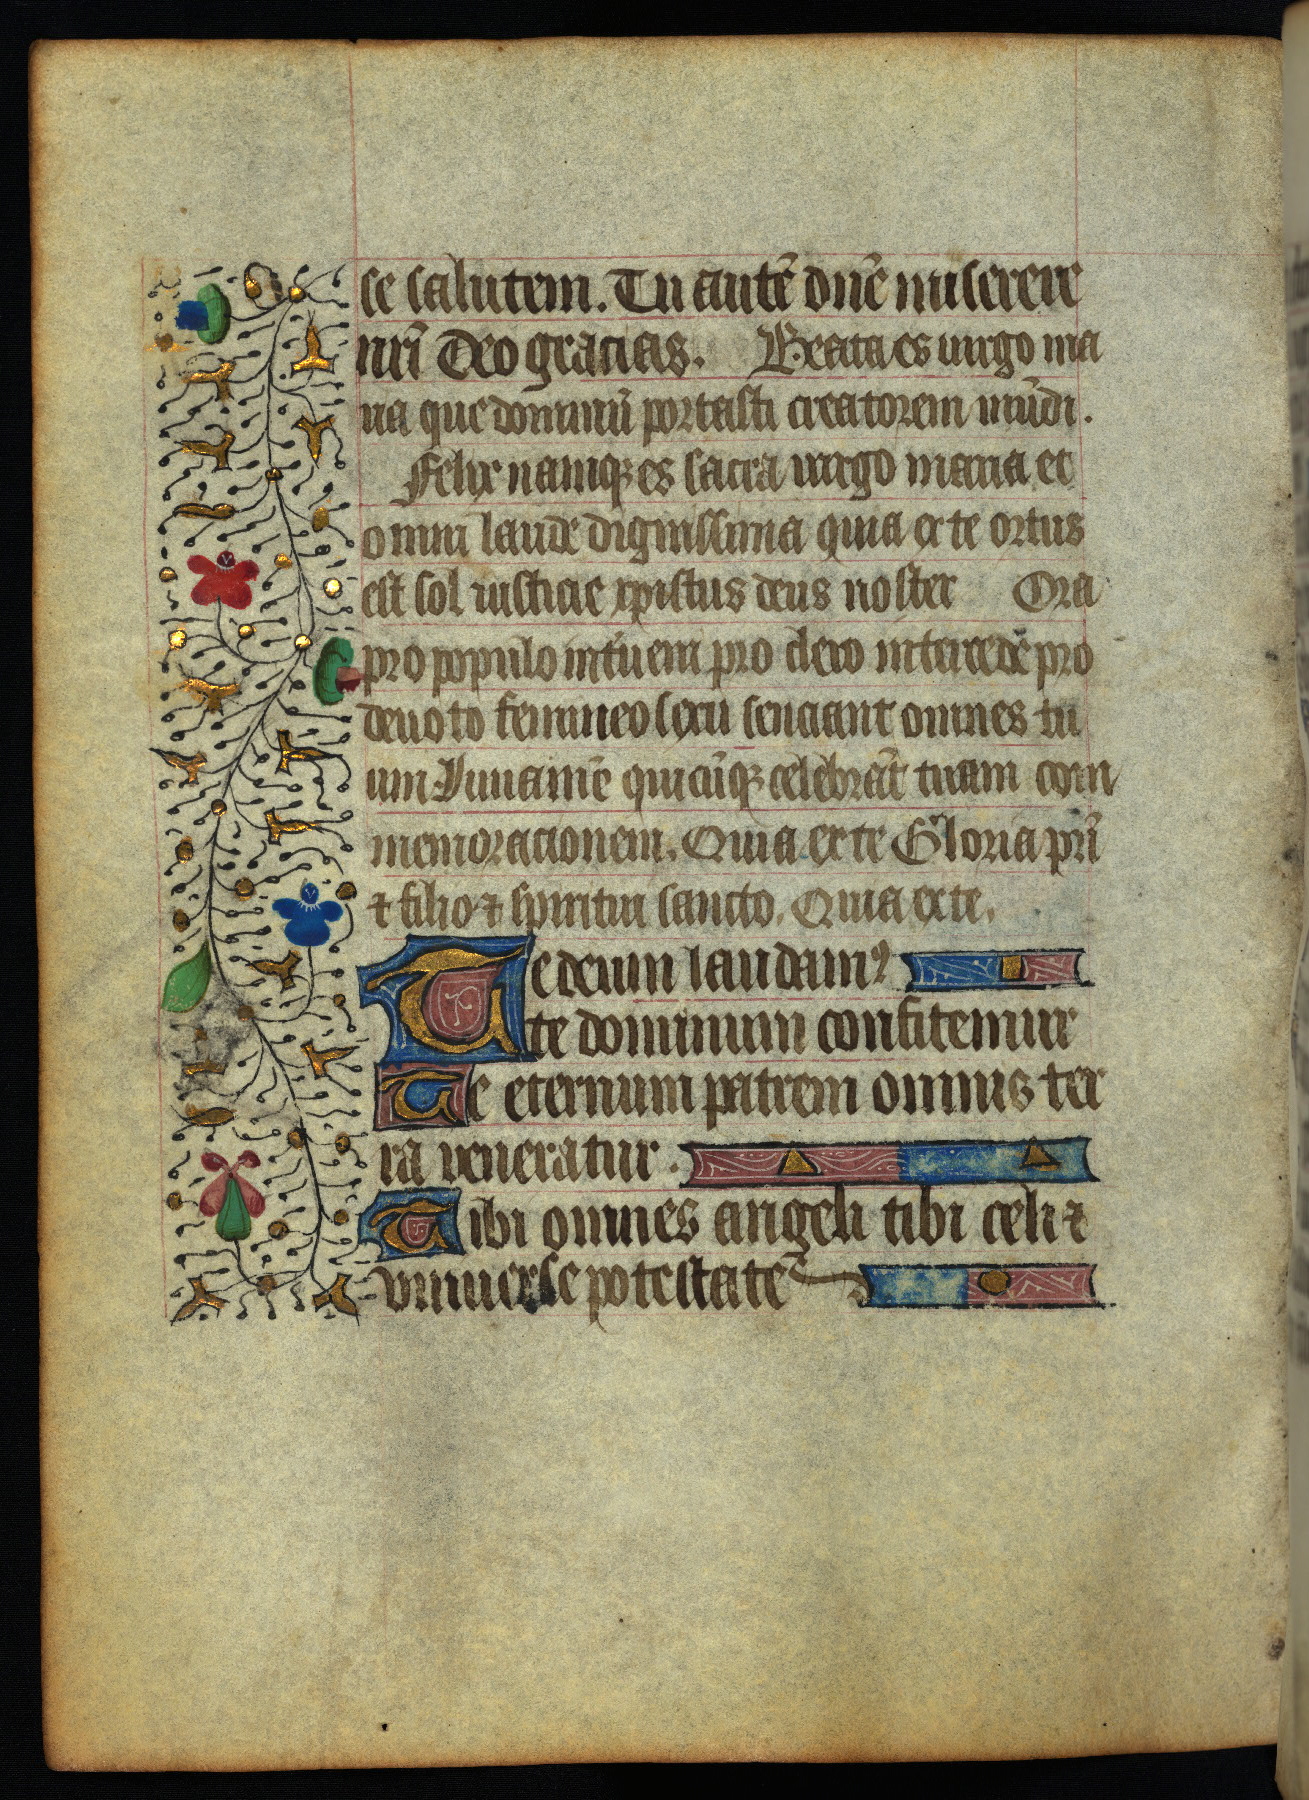 se salutem. Tu autē dn̄e miserere
nr̄i Deo gracias. Beata es uirgo ma
ria que dominū portasti creatorem mūdi.
Felix namqꝫ es sacra uirgo maria et
omni laude dignissima quia ex te ortus
est sol iusticie xpistus deus noster Ora
pro populo int̄ueni pro clero intercede pro
deuoto femineo sexu senciant omnes tu
um Iuuamē quicūqꝫ celebrāt tuam com
memoracionem. Quia ex te Gloria pr̄i
⁊ filio ⁊ spiritui sancto. Quia ex te.
Te deum laudamꝰ
te dominum confitemur
Te eternum patrem omnis ter
ra veneratur.
Tibi omnes angeli tibi celi ⁊
vniuerse potestate